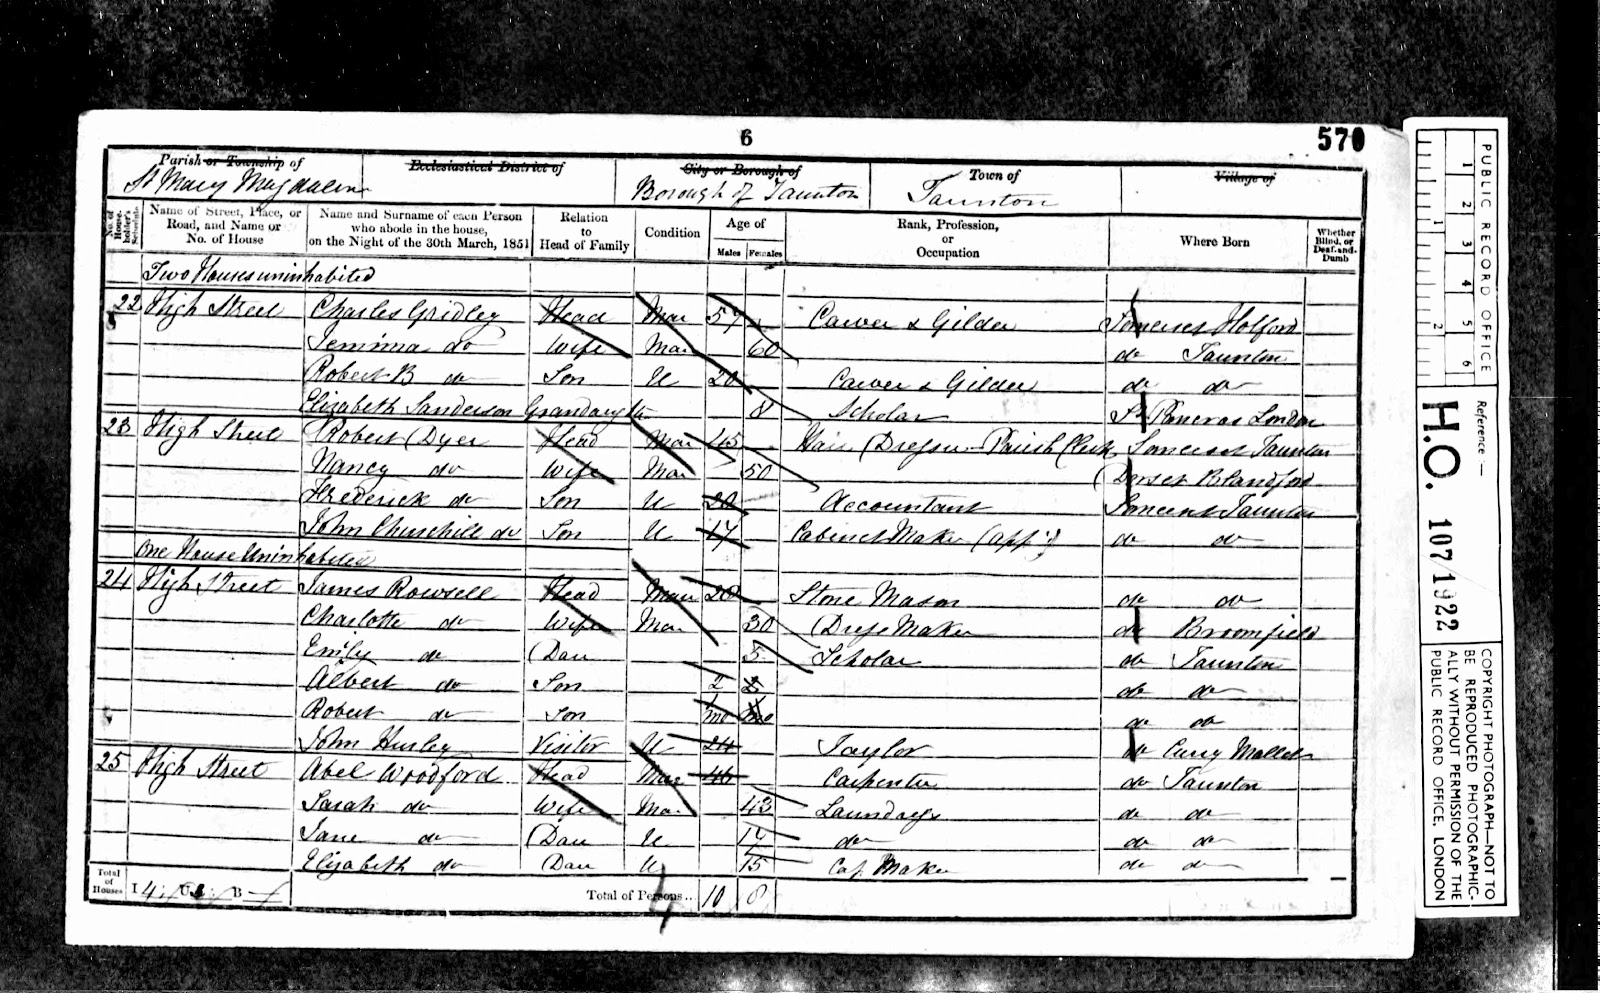 6
570
Parish or Township of
St Mary Magdalene
Ecclesiastical District of
City or Borough of
Borough of Taunton
Town of
Taunton
Village of
No. of House-holder's Schedule
Name of Street, Place, or Road, and Name or No. of House
Name and Surname of each Person who abode in the house, on the Night of the 30th March, 1851
Relation to Head of Family
Condition
Age of
Males Females
Rank, Profession, or Occupation
Where Born
Whether Blind, or Deaf-and-Dumb
Two Houses uninhabited
22 High Street Charles Gridley Head Mar 57 Carver & Gilder Somerset Holford
Jemima do Wife Mar 60 do Taunton
Robert B do Son U 20 Carver & Gilder do do
Elizabeth Sanderson Grandaughter 8 Scholar St Pancras London
23 High Street Robert Dyer Head Mar 45 Hair Dresser - Parish Clerk Somerset Taunton
Nancy do Wife Mar 50 Dorset Blandford
Frederick do Son U 20 Accountant Somerset Taunton
John Churchill do Son U 17 Cabinet Maker (app) do do
One House Uninhabited
24 High Street James Rowsell Head Mar 28 Stone Mason do do
Charlotte do Wife Mar 30 Dress Maker do Broomfield
Emily do Dau 5 Scholar do Taunton
Albert do Son 2 do do
Robert do Son 1 mo do do
John Hurley Visitor U 24 Taylor do Curry Mallet
25 High Street Abel Woodford Head Mar 46 Carpenter do Taunton
Sarah do Wife Mar 43 Laundress do do
Jane do Dau U 17 do do do
Elizabeth do Dau U 15 Cap Maker do do
Total of Houses I 4 U B Total of Persons... 10 8
4
PUBLIC RECORD OFFICE
1 2 3 4 5 6
1 2
Reference :—
H.O. 107/1922
COPYRIGHT PHOTOGRAPH—NOT TO
BE REPRODUCED PHOTOGRAPHIC-
ALLY WITHOUT PERMISSION OF THE
PUBLIC RECORD OFFICE, LONDON